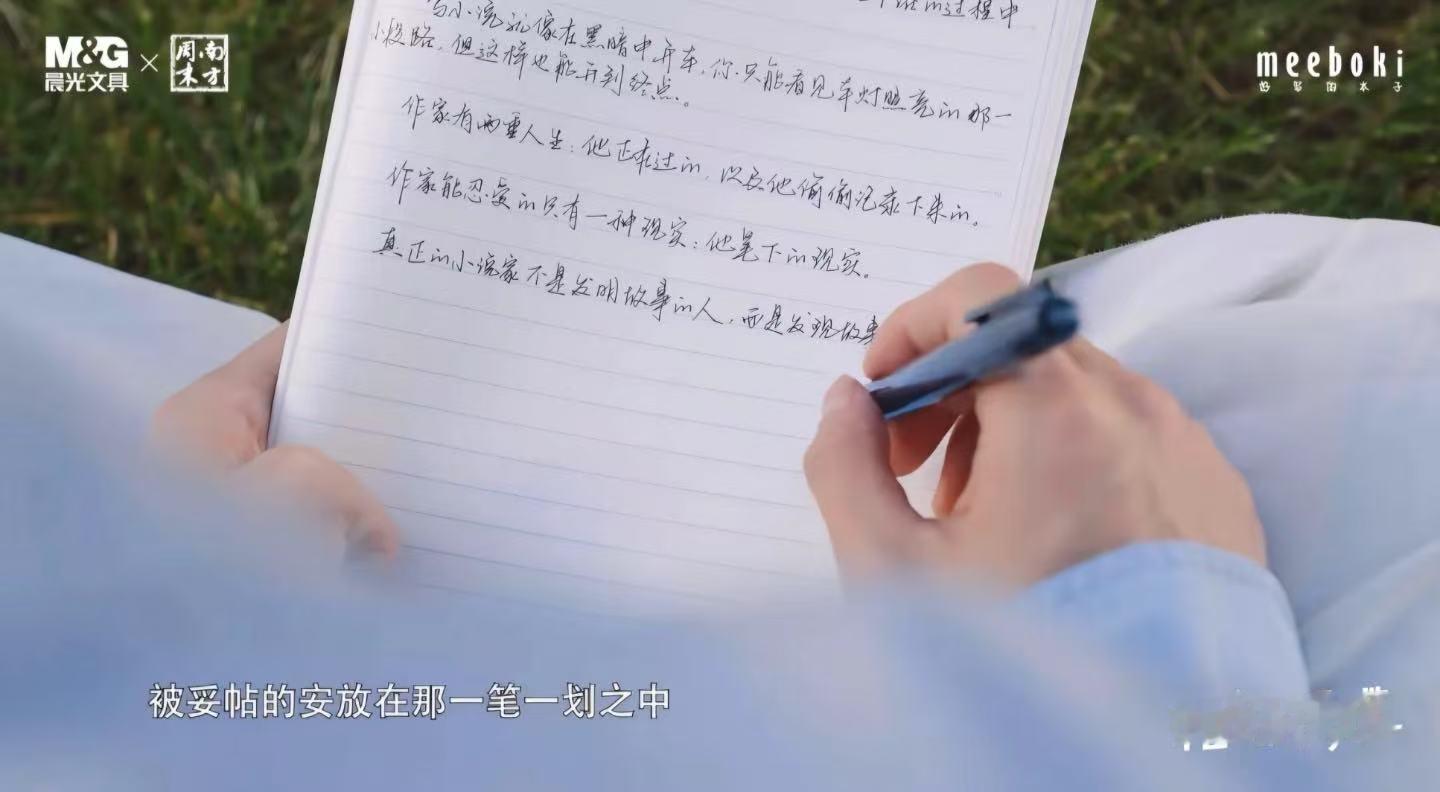 M&G
晨光文具
×
南方周末
meeboki
的过程中
写小说就像在黑暗中开车，你只能看见车灯照亮的那一
小段路，但这样也能开到终点。
作家有两重人生：他正在过的，以及他偷偷记录下来的。
作家能忍受的只有一种现实：他笔下的现实。
真正的小说家不是发明故事的人，而是发现故事
被妥帖的安放在那一笔一划之中